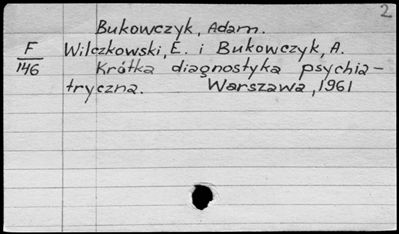 2
Bukowczyk, Adam.
F
146
Wilczkowski, E. i Bukowczyk, A.
Krótka diagnostyka psychia-
tryczna. Warszawa, 1961